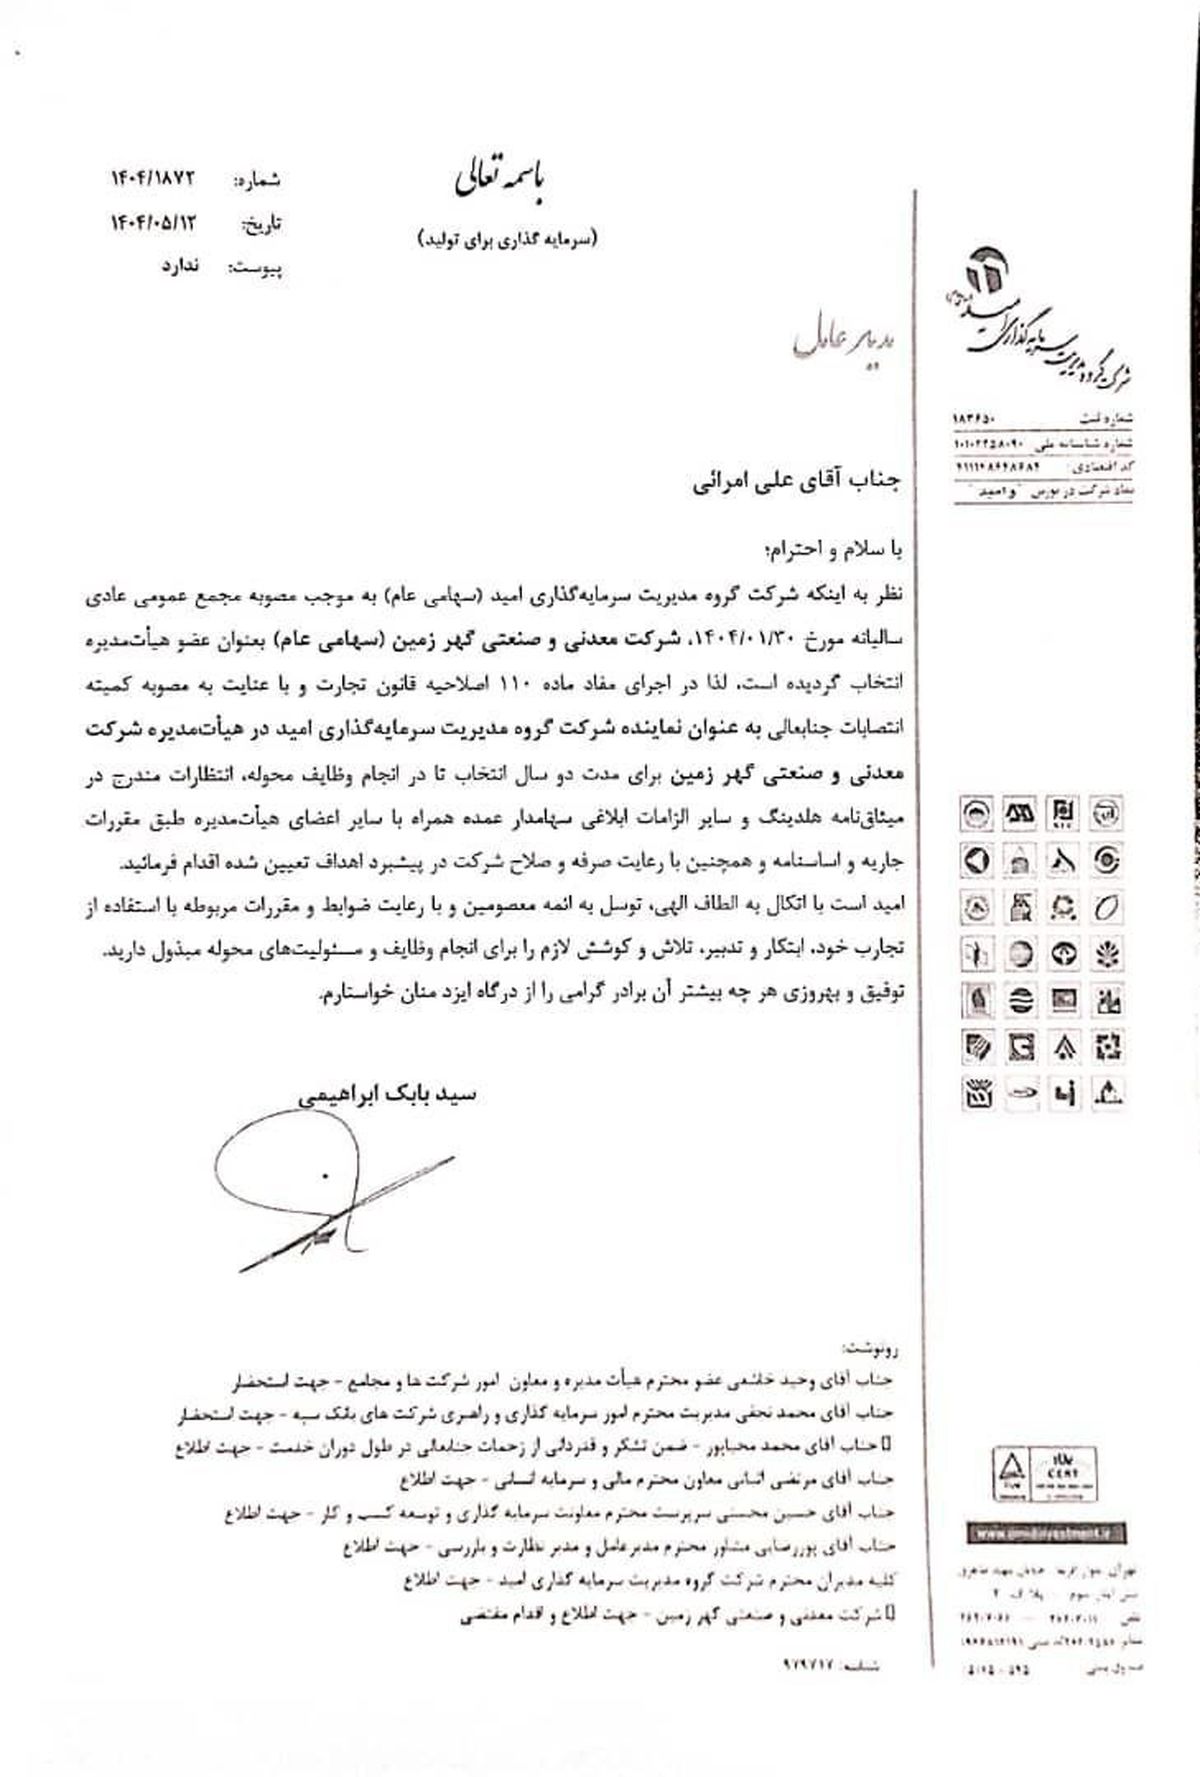 باسمه تعالی
(سرمایه گذاری برای تولید)
شماره: ۱۴۰۴/۱۸۷۲
تاریخ: ۱۴۰۴/۰۵/۱۲
پیوست: ندارد
شرکت گروه مدیریت سرمایه گذاری امید
شماره ثبت ۱۸۳۶۵۰
شماره شناسنامه ملی
کد اقتصادی:
نماد شرکت در بورس "وامید"
مدیر عامل
جناب آقای علی امرائی
با سلام و احترام؛
نظر به اینکه شرکت گروه مدیریت سرمایه‌گذاری امید (سهامی عام) به موجب مصوبه مجمع عمومی عادی
سالیانه مورخ ۱۴۰۴/۰۱/۳۰، شرکت معدنی و صنعتی گهر زمین (سهامی عام) بعنوان عضو هیأت‌مدیره
انتخاب گردیده است، لذا در اجرای مفاد ماده ۱۱۰ اصلاحیه قانون تجارت و با عنایت به مصوبه کمیته
انتصابات جنابعالی به عنوان نماینده شرکت گروه مدیریت سرمایه‌گذاری امید در هیأت‌مدیره شرکت
معدنی و صنعتی گهر زمین برای مدت دو سال انتخاب تا در انجام وظایف محوله، انتظارات مندرج در
میثاق‌نامه هلدینگ و سایر الزامات ابلاغی سهامدار عمده همراه با سایر اعضای هیأت‌مدیره طبق مقررات
جاریه و اساسنامه و همچنین با رعایت صرفه و صلاح شرکت در پیشبرد اهداف تعیین شده اقدام فرمائید.
امید است با اتکال به الطاف الهی، توسل به ائمه معصومین و با رعایت ضوابط و مقررات مربوطه با استفاده از
تجارب خود، ابتکار و تدبیر، تلاش و کوشش لازم را برای انجام وظایف و مسئولیت‌های محوله مبذول دارید.
توفیق و بهروزی هر چه بیشتر آن برادر گرامی را از درگاه ایزد منان خواستارم.
سید بابک ابراهیمی
رونوشت:
جناب آقای وحید خاشعی عضو محترم هیأت مدیره و معاون امور شرکت ها و مجامع - جهت استحضار
جناب آقای محمد نجفی مدیریت محترم امور سرمایه گذاری و راهبری شرکت های بانک سپه - جهت استحضار
جناب آقای محمد محیاپور - ضمن تشکر و قدردانی از زحمات جنابعالی در طول دوران خدمت - جهت اطلاع
جناب آقای مرتضی معاون محترم مالی و سرمایه انسانی - جهت اطلاع
جناب آقای حسین محسنی سرپرست محترم معاونت سرمایه گذاری و توسعه کسب و کار - جهت اطلاع
جناب آقای پوررضایی مشاور محترم مدیرعامل و مدیر نظارت و بازرسی - جهت اطلاع
کلیه مدیران محترم شرکت گروه مدیریت سرمایه گذاری امید - جهت اطلاع
شرکت معدنی و صنعتی گهر زمین - جهت اطلاع و اقدام مقتضی
شناسه: ۹۷۹۷۱۷
TÜV
CERT
www.omidinvestment.ir